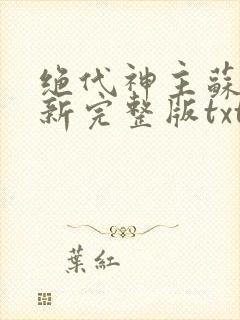 绝代神主蘇
新完整版txt
葉紅